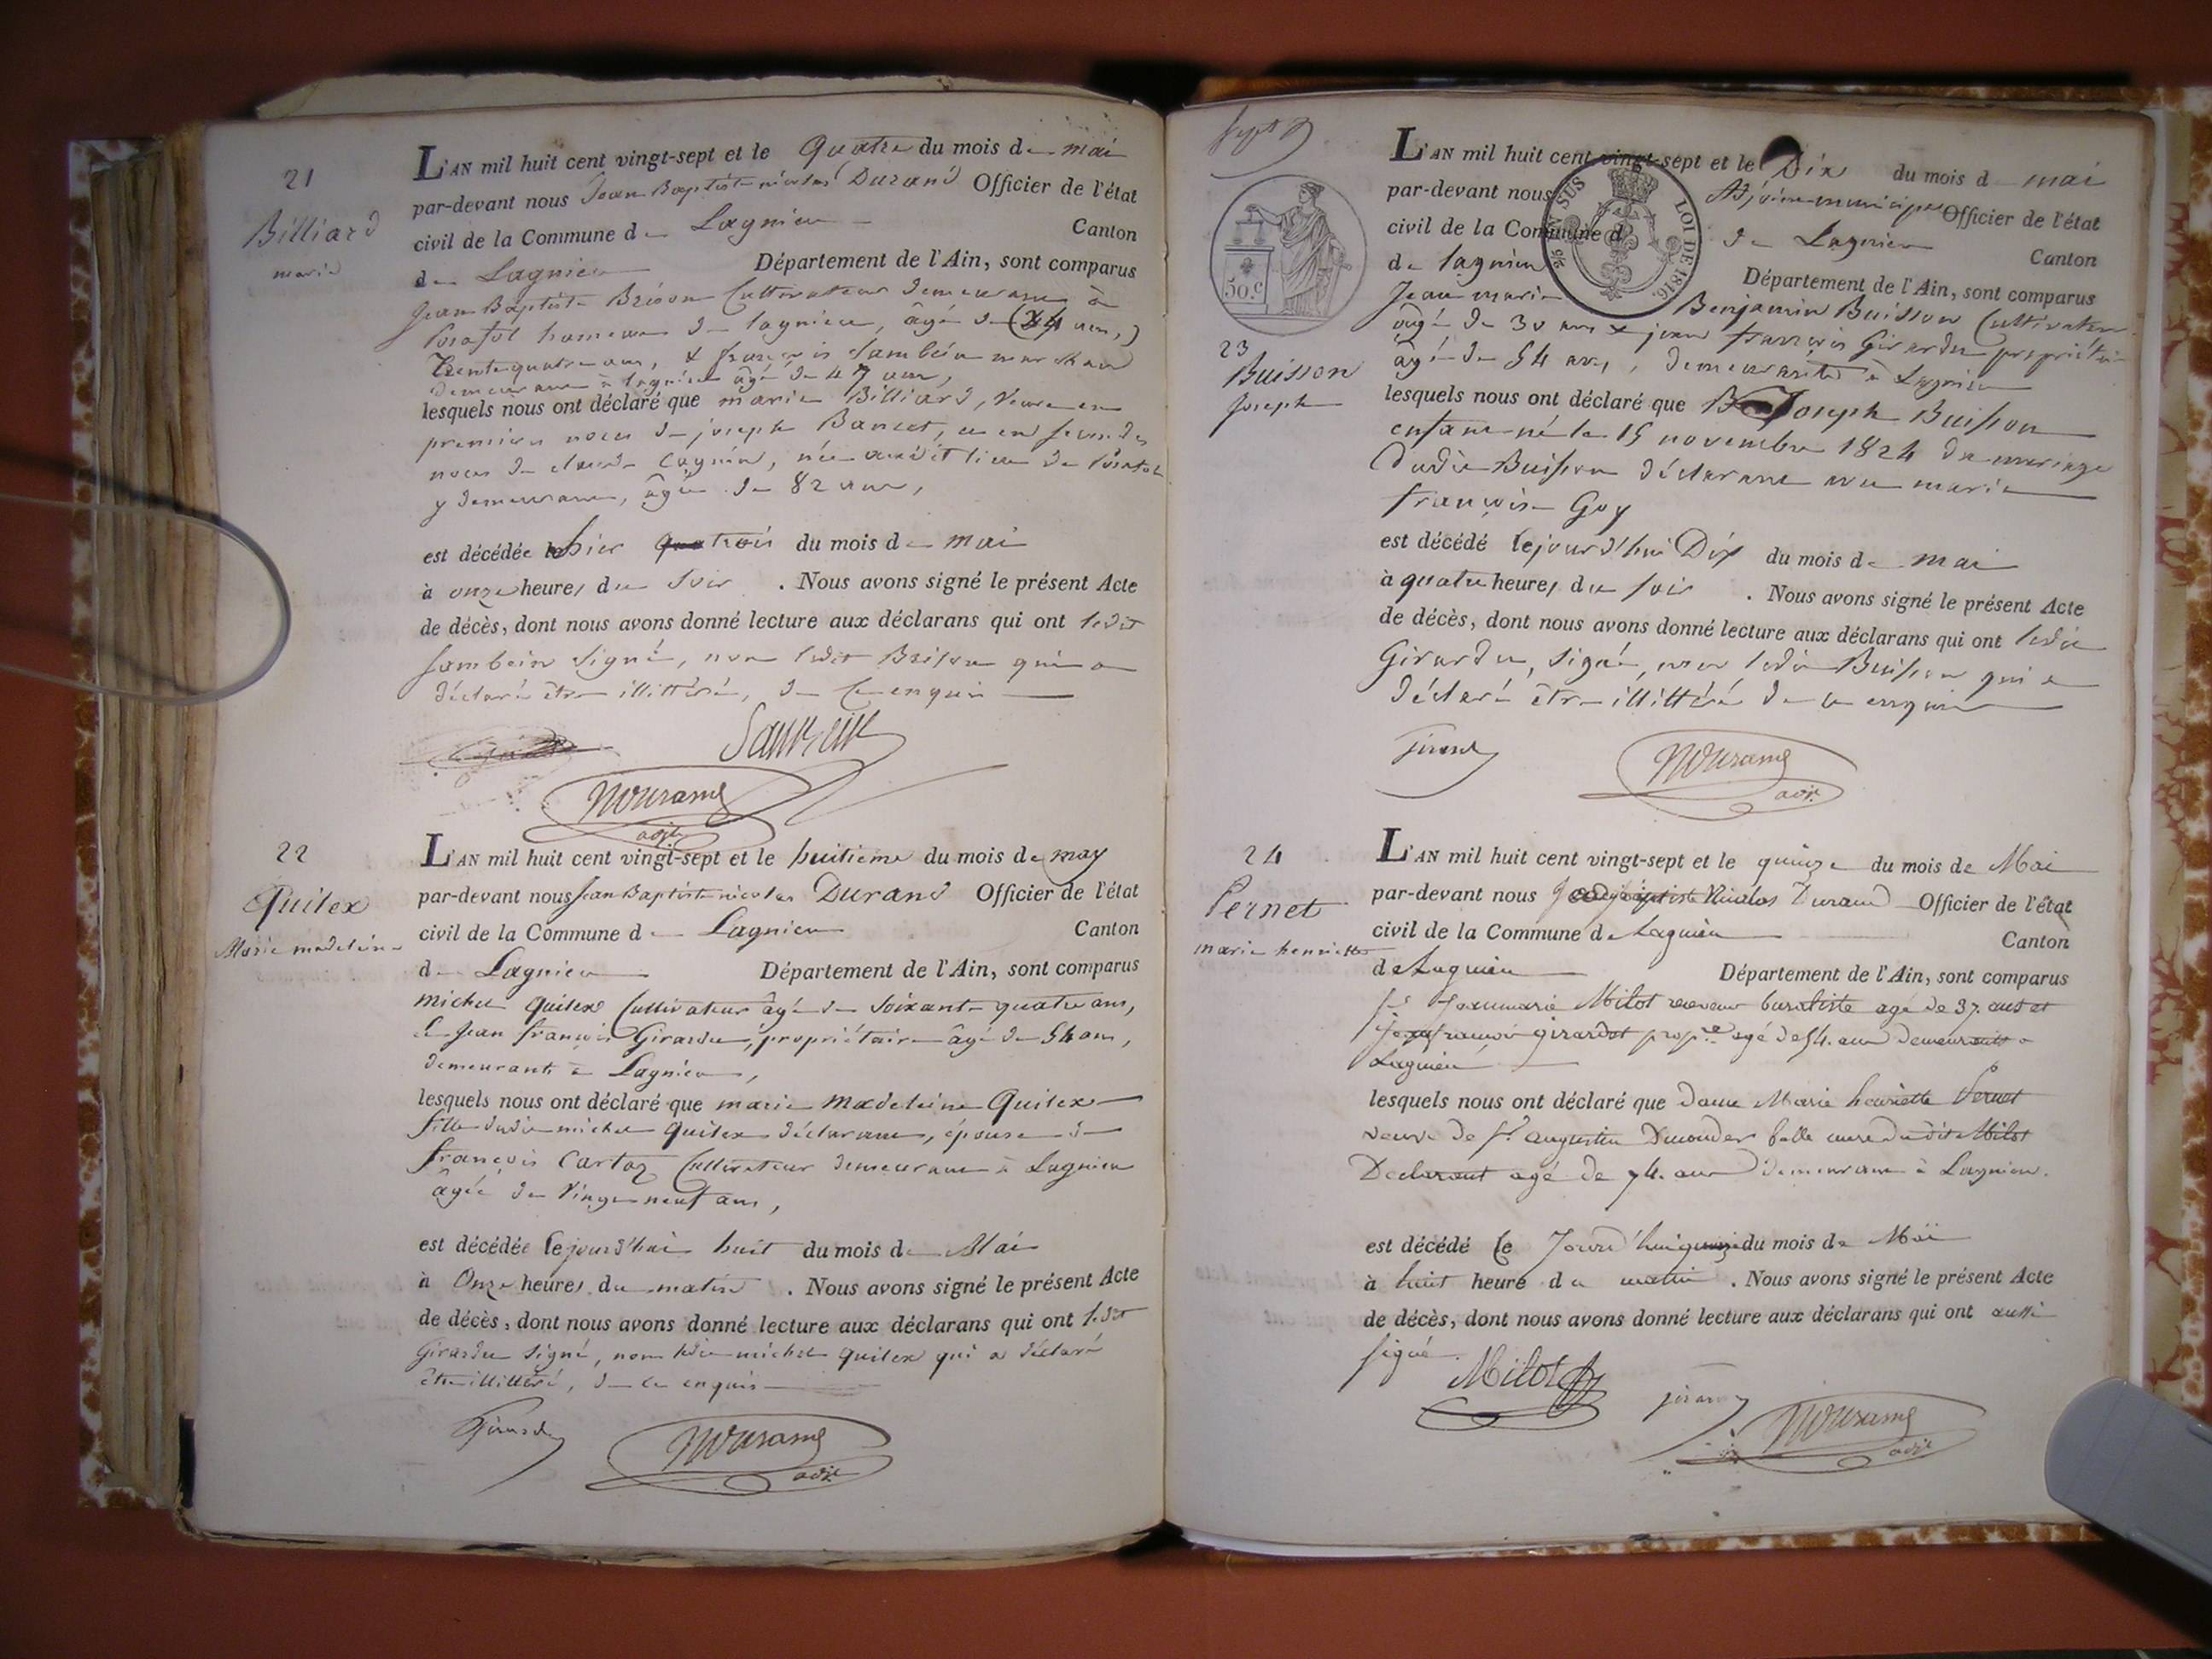 21
Billiard
marie
L'AN mil huit cent vingt-sept et le Quatre du mois de mai
par-devant nous Jean Baptiste nicolas Durand Officier de l'état
civil de la Commune de Lagnieu Canton
de Lagnieu Département de l'Ain, sont comparus
Jean Baptiste Cultivateur demeurant à
hameau de lagnieu, âgé de (34 ans,)
Trente quatre ans, & françois marchand
demeurant à lagnieu âgé de 47 ans,
lesquels nous ont déclaré que marie Billiard, Veuve en
premieres noces de joseph Bancet, et en secondes
noces de claude Cagnin, née audit lieu de
y demeurant, âgée de 82 ans,
est décédée hier trois du mois de mai
à onze heures du soir . Nous avons signé le présent Acte
de décès, dont nous avons donné lecture aux déclarans qui ont ledit
signé, non ledit qui a
déclaré être illittéré, de ce enquis
NDurand
adjt
22
Quilex
Marie madeleine
L'AN mil huit cent vingt-sept et le huitieme du mois de may
par-devant nous Jean Baptiste nicolas Durand Officier de l'état
civil de la Commune de Lagnieu Canton
de Lagnieu Département de l'Ain, sont comparus
michel Quilex Cultivateur âgé de soixante quatre ans,
& Jean françois Girardet, propriétaire âgé de 54 ans,
demeurants à Lagnieu,
lesquels nous ont déclaré que marie madeleine Quilex
fille dudit michel Quilex déclarant, épouse de
françois Cartoz Cultivateur demeurant à Lagnieu
âgée de Vingt neuf ans,
est décédée le jourd'hui huit du mois de Mai
à Onze heures du matin . Nous avons signé le présent Acte
de décès, dont nous avons donné lecture aux déclarans qui ont ledit
Girardet signé, non ledit michel Quilex qui a déclaré
être illittéré, de ce enquis
Girardet
NDurand
adjt
LOI DE 1816.
EN SUS
50.c
23
Buisson
Joseph
L'AN mil huit cent vingt-sept et le Dix du mois d mai
par-devant nous Adjoint municipal Officier de l'état
civil de la Commune d de Lagnieu Canton
de lagnieu Département de l'Ain, sont comparus
Jean marie Benjamin Buisson Cultivateur
âgé de 30 ans & jean francois Girardet propriétaire
âgé de 54 ans, demeurants à Lagnieu
lesquels nous ont déclaré que Joseph Buisson
enfant né le 15 novembre 1824 du mariage
dudit Buisson déclarant avec marie
françoise Goy
est décédé le jourd'hui Dix du mois de mai
à quatre heures du soir . Nous avons signé le présent Acte
de décès, dont nous avons donné lecture aux déclarans qui ont ledit
Girardet, signé, non ledit Buisson qui a
déclaré être illittéré de ce enquis
NDurand
adjt
24
Pernet
marie henriette
L'AN mil huit cent vingt-sept et le quinze du mois de Mai
par-devant nous Jean baptiste Nicolas Durand Officier de l'état
civil de la Commune de Lagnieu Canton
de Lagnieu Département de l'Ain, sont comparus
Sr Jean marie Milot receveur buraliste agé de 37. ans et
Jean françois girardet prop.re agé de 54. ans demeurants a
Lagnieu
lesquels nous ont déclaré que dame Marie henriette Pernet
veuve de Sr augustin belle mere dudit Milot
Declarant agé de 74. ans demeurant à Lagnieu.
est décédé le Jourd'hui quinze du mois de Mai
à huit heure du matin . Nous avons signé le présent Acte
de décès, dont nous avons donné lecture aux déclarans qui ont aussi
signé.
Milot
NDurand
adjt